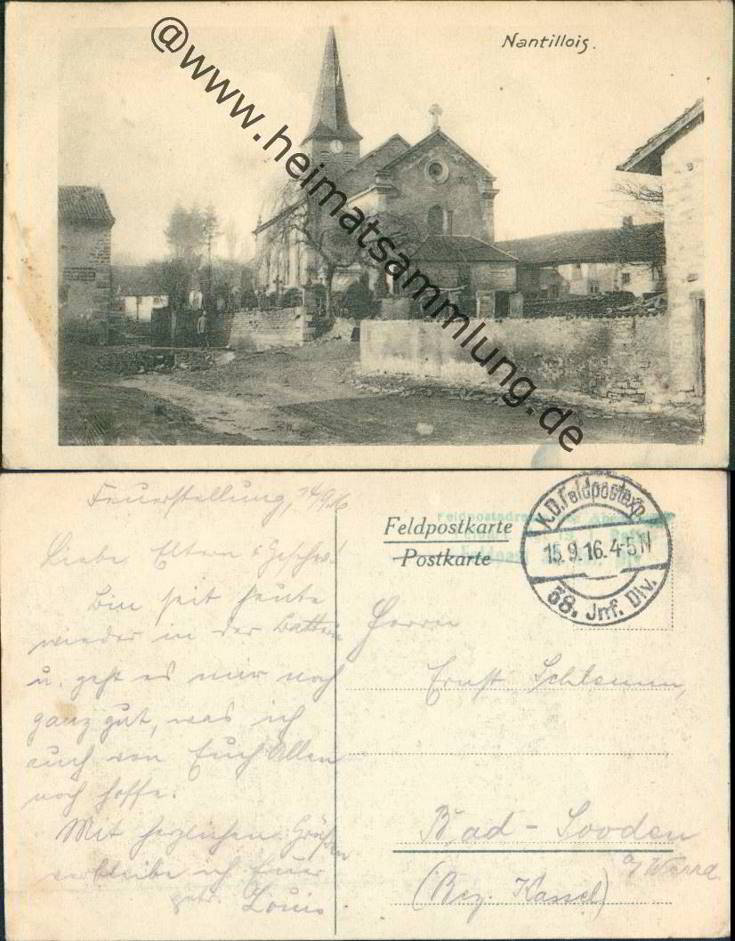 Nantillois.
@www.heimatsammlung.de
Feuerstellung, 14/9.16
Liebe Eltern & Geschw.!
Bin seit heute
wieder in der Batterie
u. geht es mir noch
ganz gut, was ich
auch von Euch Allen
noch hoffe.
Mit herzlichen Grüßen
verbleibe ich Euer
Louis
Feldpostkarte
Postkarte
K.D.Feldpostexp.
15.9.16.4-5N
Jnf. Div.
Herrn
Ernst
Bad-Sooden
a/Werra.
(Bez. Kassel)